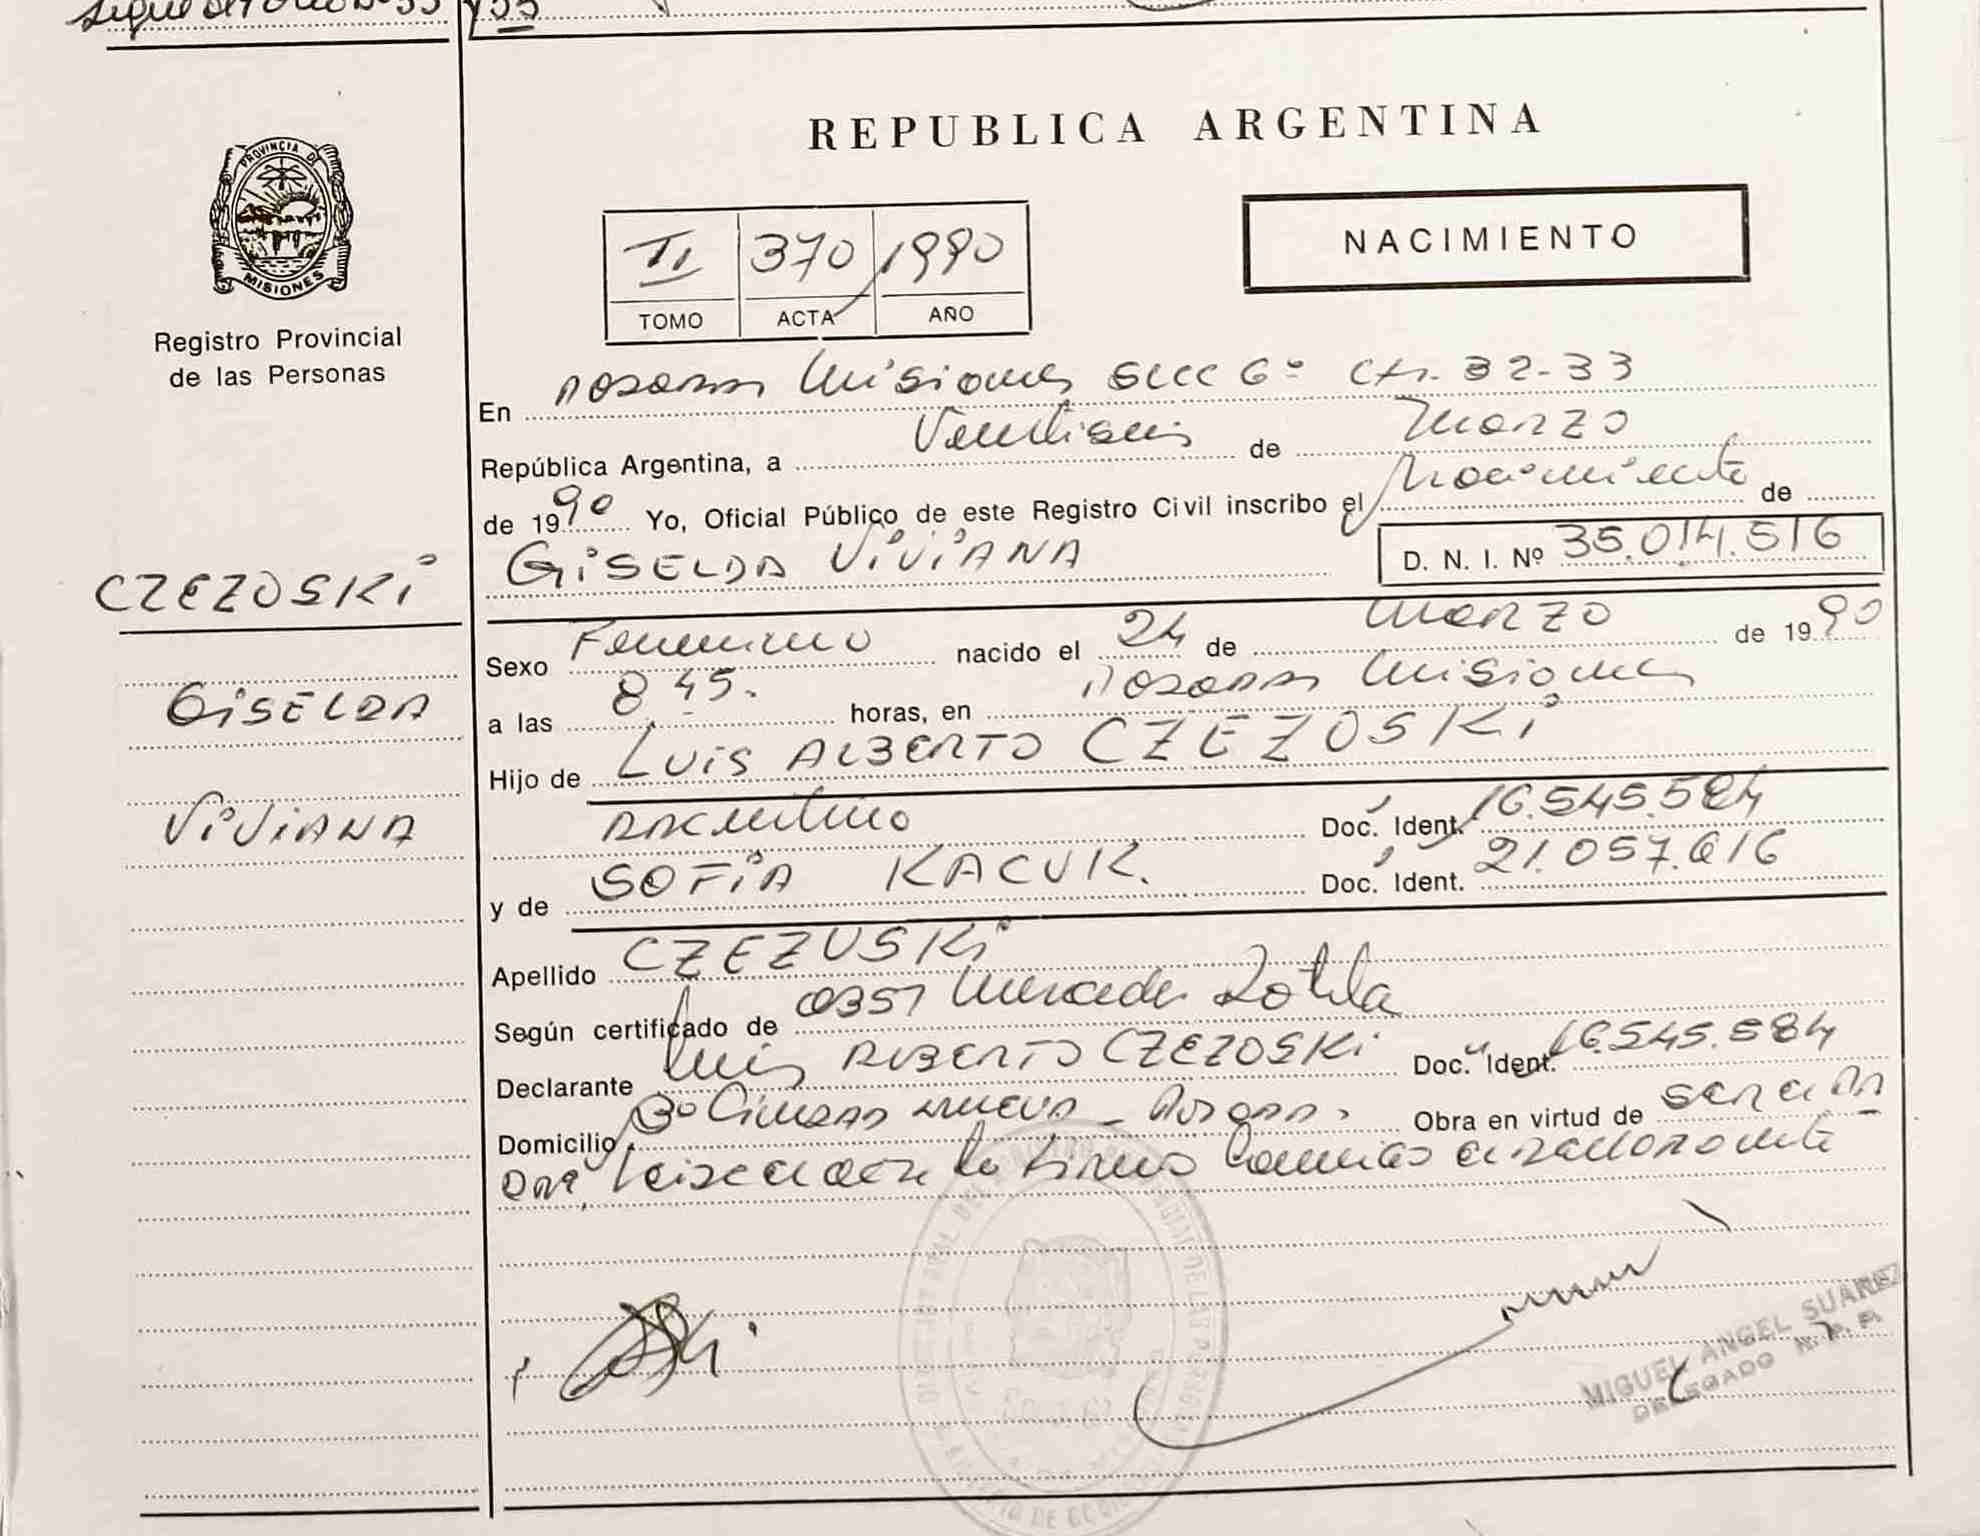 REPUBLICA ARGENTINA
PROVINCIA DE
MISIONES
Registro Provincial
de las Personas
II 370 1990
TOMO ACTA AÑO
NACIMIENTO
En Posadas Misiones Secc 6º Ctr. 32-33
República Argentina, a Veintiseis de Marzo
de 1990 Yo, Oficial Público de este Registro Civil inscribo el Nacimiento de
GISELDA VIVIANA D. N. I. Nº 35.014.516
CZEZOSKI
GISELDA
VIVIANA
Sexo Femenino nacido el 24 de Marzo de 1990
a las 8 45. horas, en Posadas Misiones
Hijo de LUIS ALBERTO CZEZOSKI
Argentino Doc. Ident. 16.545.584
y de SOFIA KACUK. Doc. Ident. 21.057.616
Apellido CZEZOSKI
Según certificado de 0357 Mercedes
Declarante Luis ALBERTO CZEZOSKI Doc. Ident. 16.545.584
Domicilio Bº Posadas. Obra en virtud de
MIGUEL ANGEL SUAREZ
DELEGADO